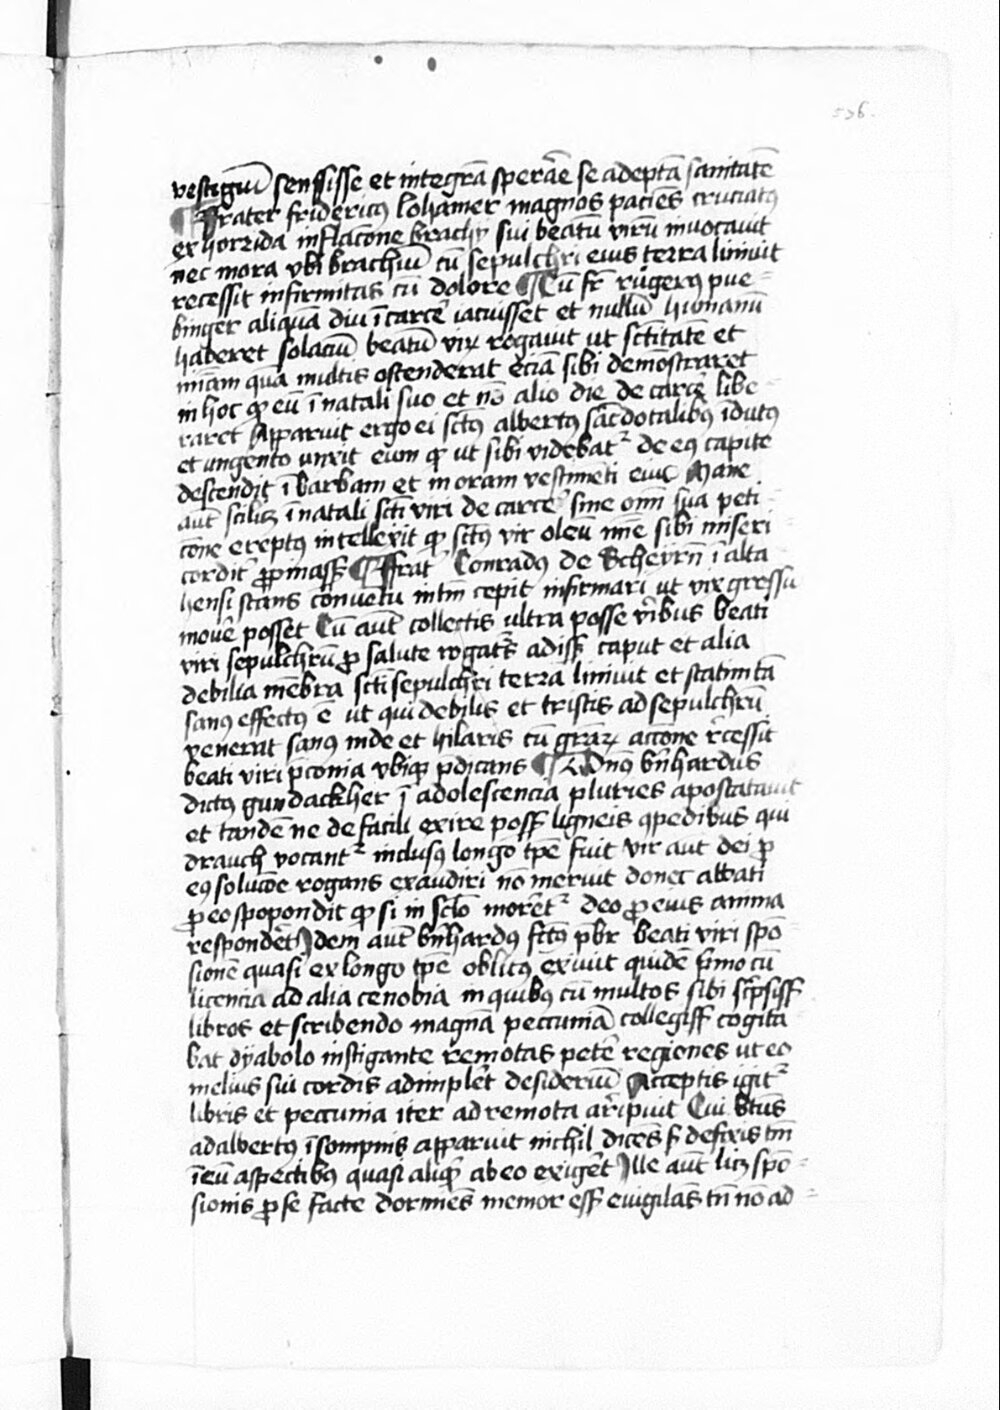 536.
vestigiū sensisse et integrā sperāe se adeptā sanitatē
¶ Frater fridericꝰ lohamer magnos paciēs cruciatꝰ
ex horrida inflacōne brachij sui beatū virū invocavit
nec mora vbi brachiū cū sepulchri eius terra linivit
recessit infirmitas cū dolore ¶ Cū fr̄ růgerꝰ pue⸗
binger aliquā diu ī carcē iacuisset et nullū humanū
haberet solaciū beatū vix rogavit ut sctītatē et
miām quā multis ostenderat eciā sibi demōstraret
in hoc ꝙ eū ī natali suo et nō alio die de carcē libe⸗
raret Apparuit ergo ei sctūs albertꝰ sacdotalibꝰ īdutꝰ
et ungento unxit eum ꝙ ut sibi videbatᷣ de eꝰ capite
descendit ī barbam et in oram vestimēti eius Mane
aut̄ scilicꝫ ī natali scti viri de carcē sine omī sua peti⸗
cōne ereptꝰ intellexit ꝙ sctūs vir oleū mīe sibi miseri⸗
cordit̄ ꝓpinasſꝫ ¶ Frat̄ Conradꝰ de Scheyrn̄ ī alta⸗
hensi stans cōnvetu intm̄ cepit infirmari ut vix gressū
movē posset Cū aut̄ collectis ultra posse vīribus beati
viri sepulchrū ꝓ salute rogatᷣꝰ adisſꝫ caput et alia
debilia mēbra scti sepulchri terra linivit et statim tā
sanꝰ effectꝰ ē ut qui debilis et tristis ad sepulchrū
venerat sanꝰ inde et hilaris cū grāꝝ accōne r̄cessit
beati viri p̄conia vbiqꝫ p̄dicans ¶ Dn̄ꝰ bn̄hardus
dictꝰ gundackher ī adolescencia pluries apostatavit
et tandē ne de facili exire possꝫ ligneis ꝯpedibus qui
drauch vocantᷣ inclusꝰ longo tp̄e fuit vir aut̄ dei ꝓ
eꝰ solucōe rogans exaudiri nō meruit donec abbati
ꝓ eo spopondit ꝙ si in sclo mor̄etᷣ deo ꝓ eius anima
respondēt Idem aut̄ bn̄hardꝰ fctūs pb̄r beati viri spō⸗
sionē quasi ex longo tp̄e oblitꝰ exivit quidē p̄imo cū
licencia ad alia cenobia in quibꝰ cū multos sibi sc̄psisſꝫ
libros et scribendo magnā peccuniā collegisſꝫ cogita
bat dyabolo instigante remotas petē regiones ut eo
melius sui cordis adimplēt desideriū Acceptis igitᷣ
libris et peccunia iter ad remota ar̄ipuit Cui Btūs
adalbertꝰ ī sompnis apparuit nichil dicēs sꝫ defixis tm̄
ī eū aspectibꝰ quasi aliqd̄ ab eo exigēt Ille aut̄ licꝫ spō⸗
sionis ꝓ se facte dormiēs memor essꝫ evigilās tn̄ nō ad⸗